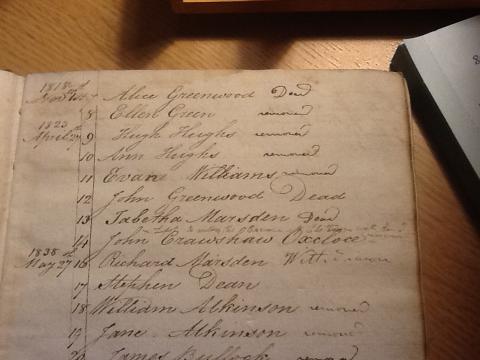 1818
Novbr 1st 7 Alice Greenwood Dead
8 Ellen Green removed
1823
April 27 9 Hugh Heighs removed
10 Ann Heighs removed
11 Evan Williams removed
12 John Greenwood Dead
13 Tabetha Marsden Dead
14 John Crawshaw Oxclose
1838
May 27 16 Richard Marsden
17 Stephen Dean
18 William Atkinson removed
19 Jane Atkinson removed
20 James Bullock removed